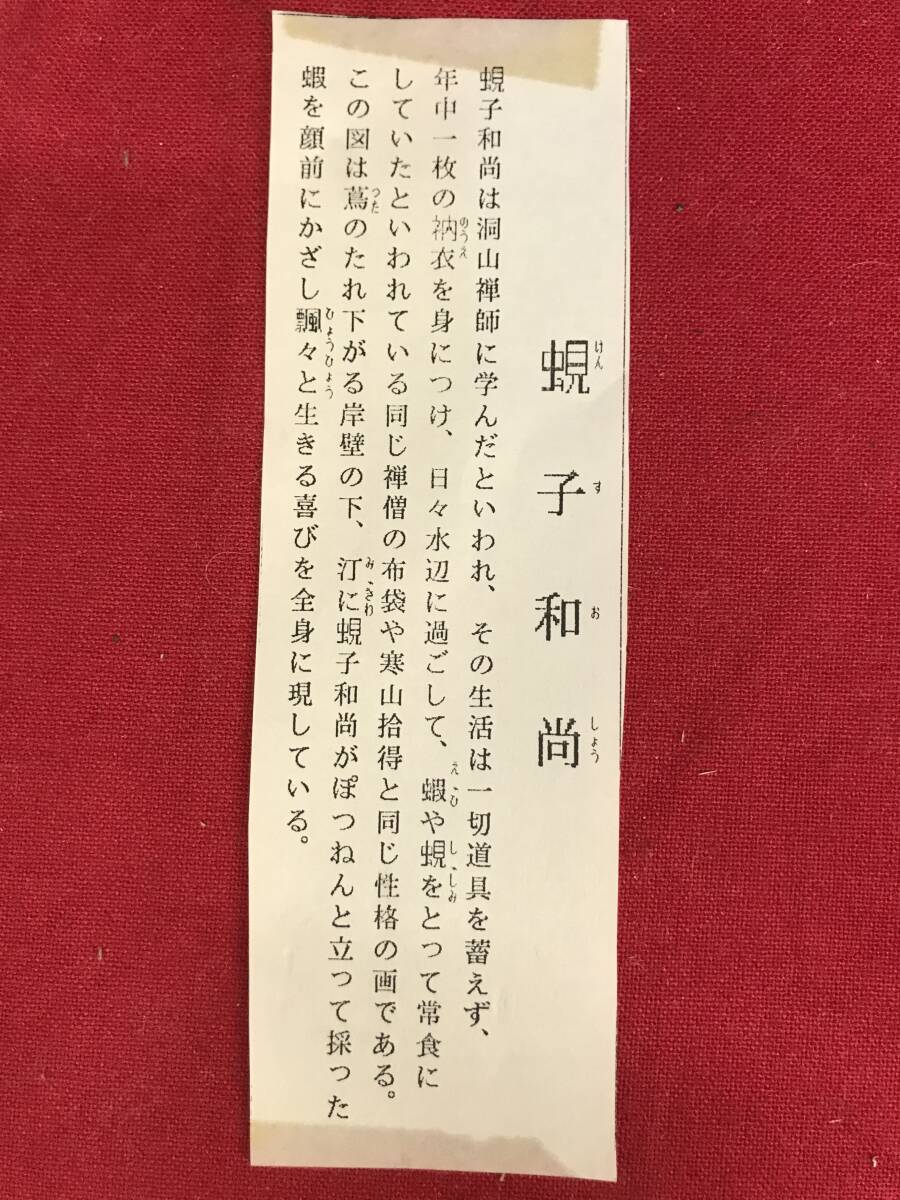 蜆子和尚
けんすおしょう
蜆子和尚は洞山禅師に学んだといわれ、その生活は一切道具を蓄えず、
年中一枚の衲衣を身につけ、日々水辺に過ごして、蝦や蜆をとって常食に
のうえ
えび
しじみ
していたといわれている同じ禅僧の布袋や寒山拾得と同じ性格の画である。
この図は蔦のたれ下がる岸壁の下、汀に蜆子和尚がぽつねんと立つて採った
つた
みぎわ
蝦を顔前にかざし飄々と生きる喜びを全身に現している。
ひょうひょう